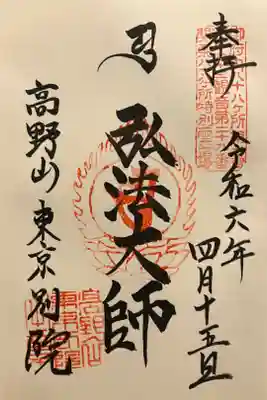 奉拝
令和六年
四月十五日
弘法大師
高野山東京別院